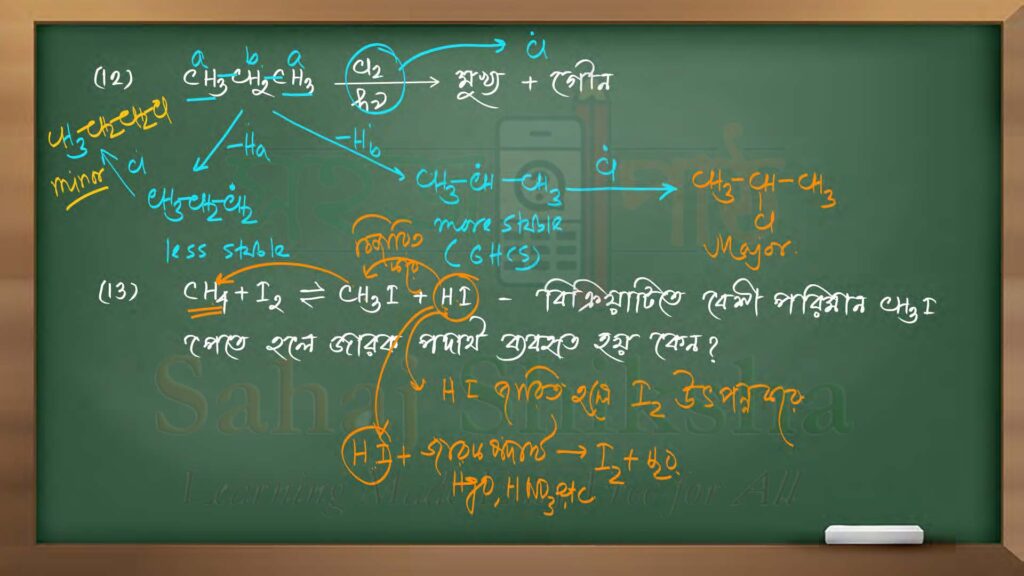 a b a
(12) CH₃-CH₂-CH₃ Cl₂ / hν → মুখ্য + গৌন
Ċl
CH₃-CH₂-CH₂Cl
minor
Ċl
-Ḣa
-Ḣb
CH₃-CH₂-ĊH₂
less stable
CH₃-ĊH-CH₃
more stable
(6HCS)
Ċl
CH₃-CH-CH₃
Cl
Major.
বিজারিত
করে
(13) CH₄ + I₂ ⇌ CH₃I + HI - বিক্রিয়াটিতে বেশী পরিমান CH₃I
পেতে হলে জারক পদার্থ ব্যবহৃত হয় কেন?
HI জারিত হলে I₂ উৎপন্ন করে
HI + জারক পদার্থ → I₂ + H₂O
HgO, HNO₃ etc
Sahaj Shiksha
Learning for All